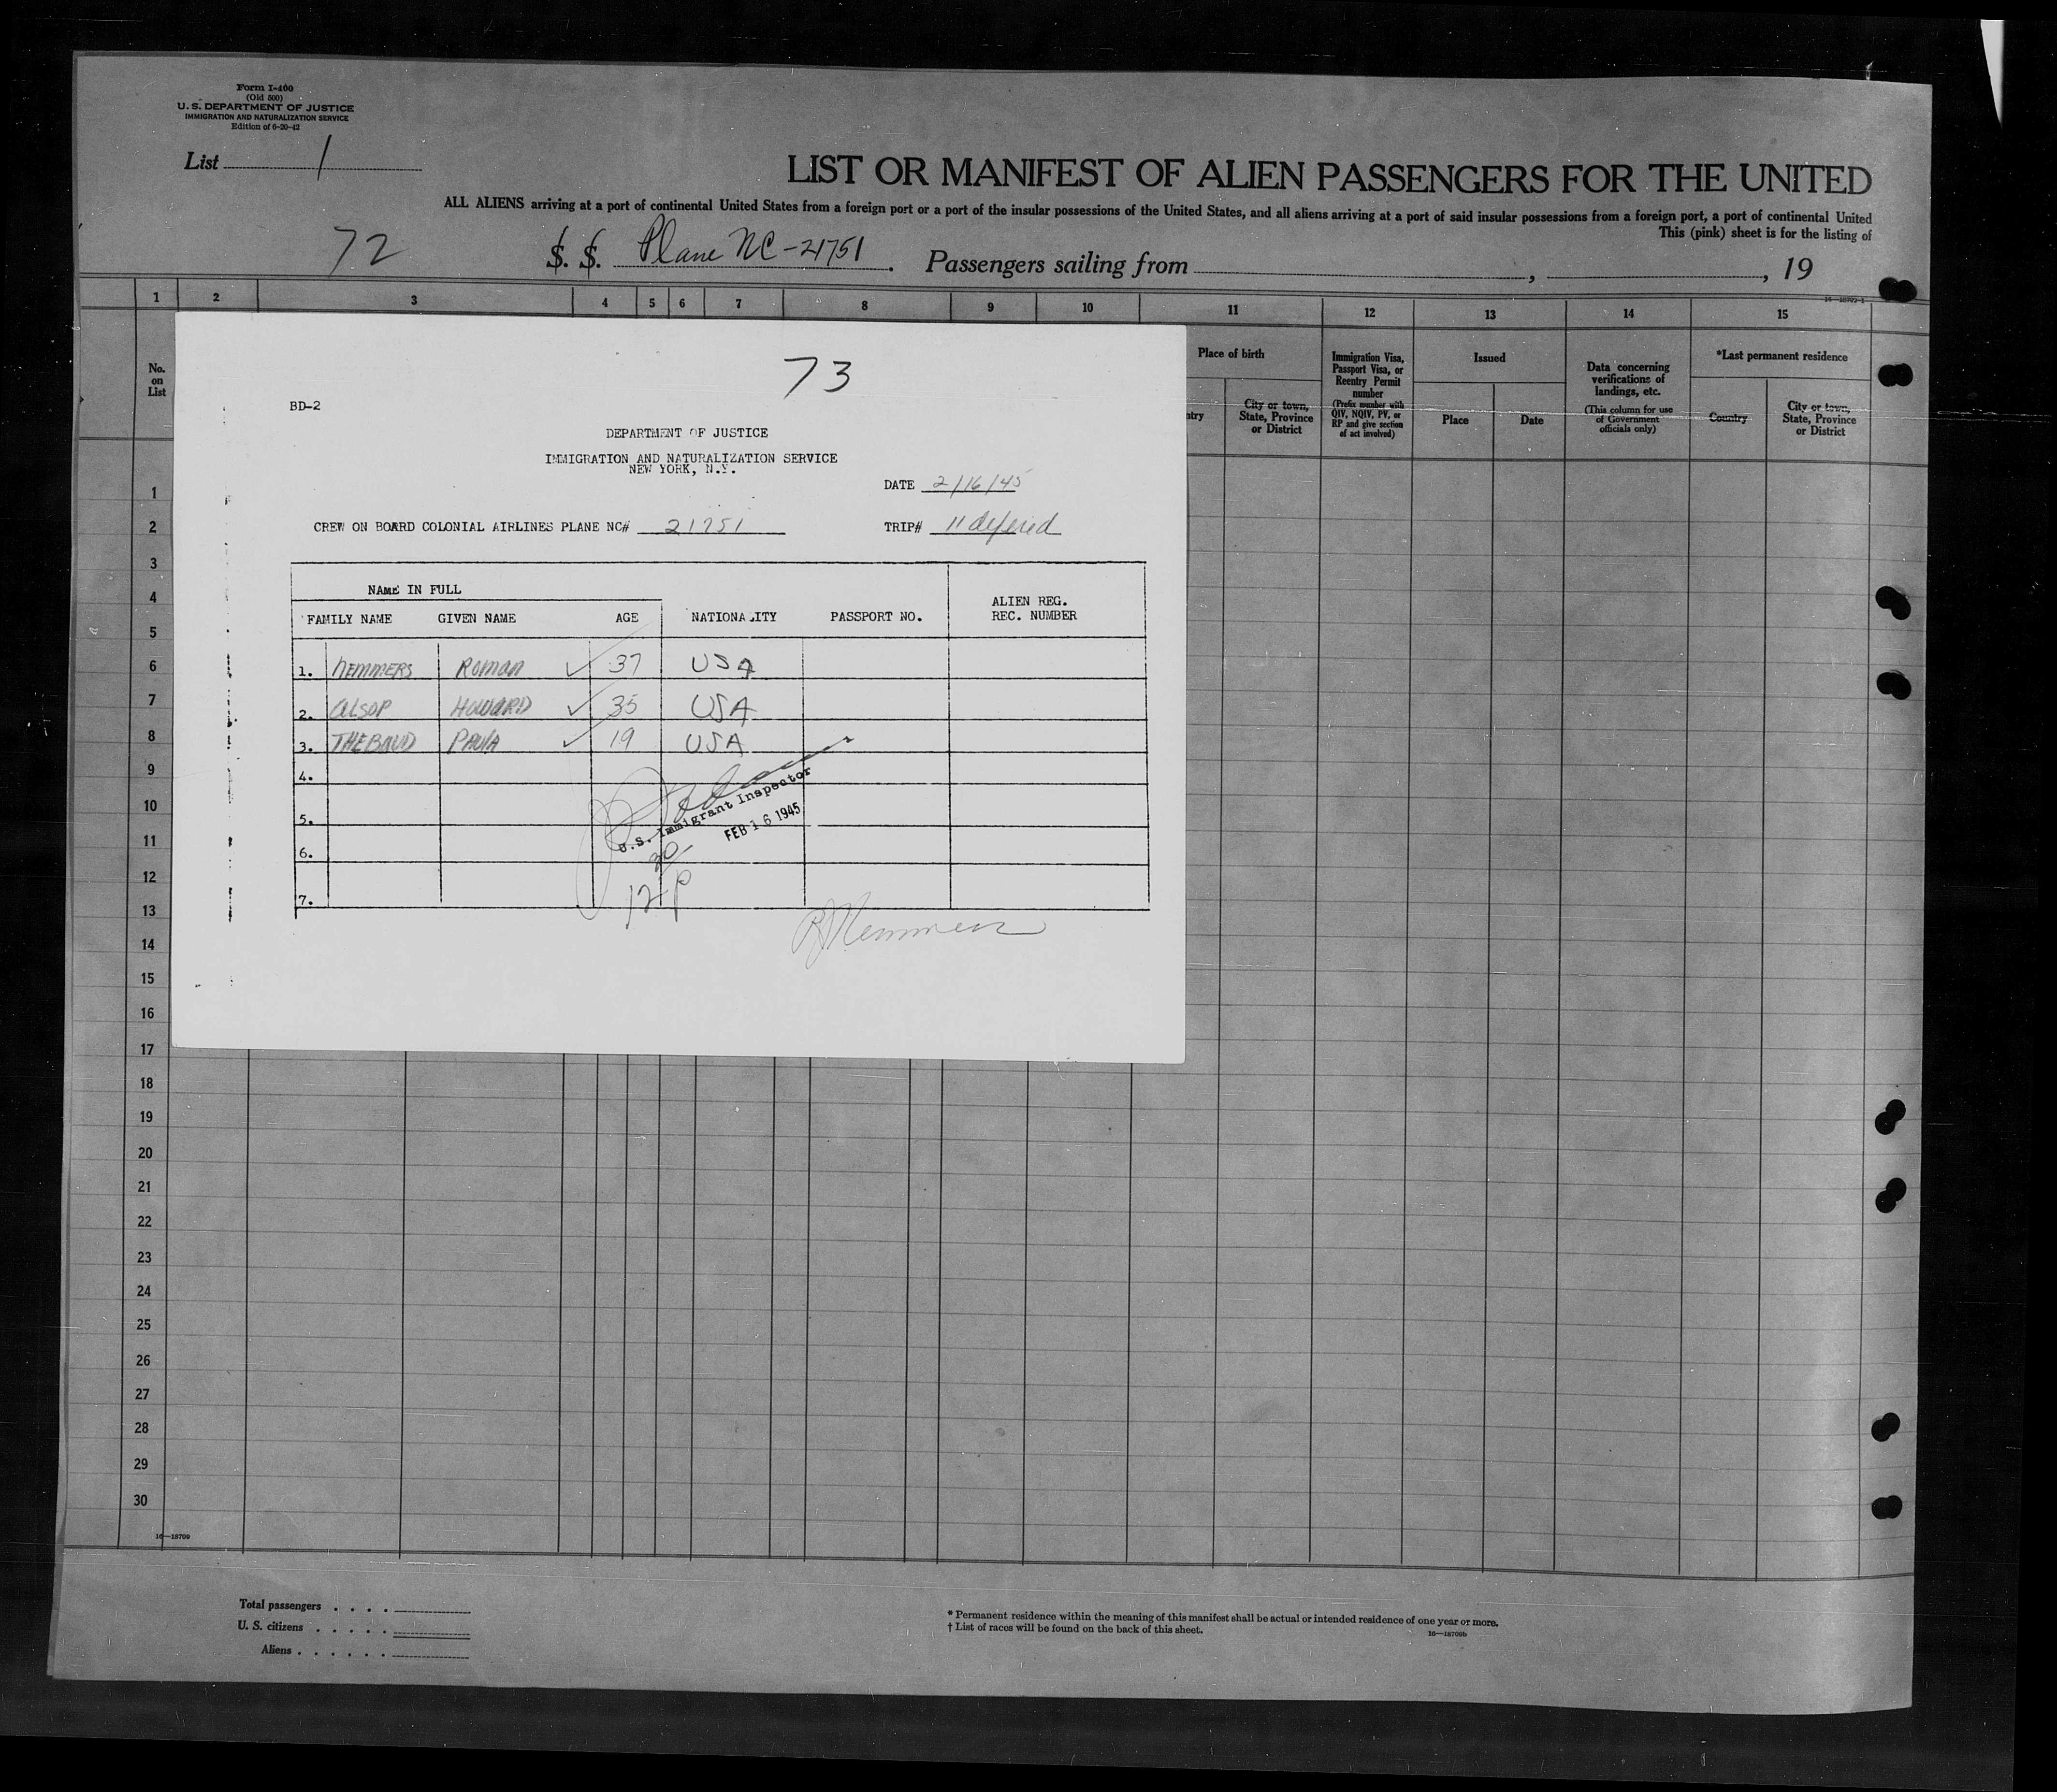 Form I-400
(Old 500)
U. S. DEPARTMENT OF JUSTICE
IMMIGRATION AND NATURALIZATION SERVICE
Edition of 6-20-42
List 1
LIST OR MANIFEST OF ALIEN PASSENGERS FOR THE UNITED
ALL ALIENS arriving at a port of continental United States from a foreign port or a port of the insular possessions of the United States, and all aliens arriving at a port of said insular possessions from a foreign port, a port of continental United
This (pink) sheet is for the listing of
72 S. S. Plane NC-21751. Passengers sailing from , , 19
16-18709-1
1 2 3 4 5 6 7 8 9 10 11 12 13 14 15
No. on List
Place of birth
ntry
City or town, State, Province or District
Immigration Visa, Passport Visa, or Reentry Permit number
(Prefix number with QIV, NQIV, PV, or RP and give section of act involved)
Issued
Place
Date
Data concerning verifications of landings, etc.
(This column for use of Government officials only)
*Last permanent residence
Country
City or town, State, Province or District
73
BD-2
DEPARTMENT OF JUSTICE
IMMIGRATION AND NATURALIZATION SERVICE
NEW YORK, N.Y.
DATE 2/16/45
CREW ON BOARD COLONIAL AIRLINES PLANE NC# 21751 TRIP# 11 defered
NAME IN FULL
FAMILY NAME GIVEN NAME AGE NATIONALITY PASSPORT NO. ALIEN REG. REC. NUMBER
1. NEMMERS ROMAN ✓ 37 USA
2. ALSOP HOWARD ✓ 35 USA
3. THEBAUD PAULA ✓ 19 USA
4.
5.
6.
7.
U.S. Immigrant Inspector
FEB 16 1945
30
12 P
R Nemmers
1
2
3
4
5
6
7
8
9
10
11
12
13
14
15
16
17
18
19
20
21
22
23
24
25
26
27
28
29
30
16-18709
Total passengers . . . .
U. S. citizens . . . . .
Aliens . . . . . .
* Permanent residence within the meaning of this manifest shall be actual or intended residence of one year or more.
† List of races will be found on the back of this sheet.
16-18709b